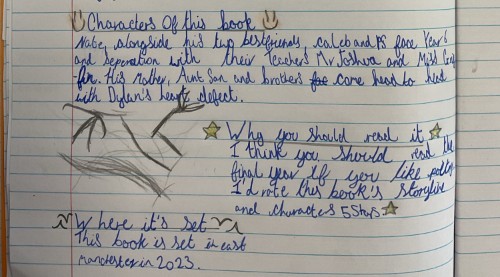 Characters Of this book
Nate, alongside his two bestfriends, caleb and PS face Year 6
and Seperation with their Teachers Mr Joshua and Miss
fin. His Mother, Aunt San and brothers come head to head
with Dylan's heart defect.
Why you should read it
I think you should read the
final year If you like
I'd rate this book's storyline
and characters 5 Stars
Where it's set
This book is set in east
manchester in 2023.